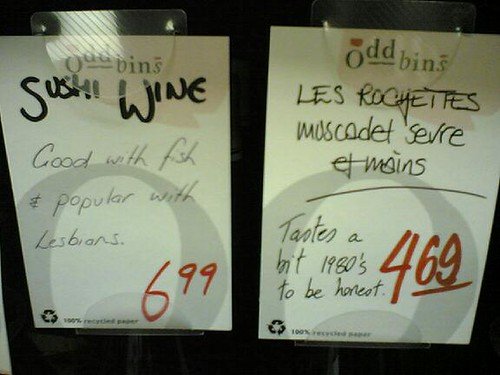 Oddbins
SUSHI WINE
Good with fish
& popular with
Lesbians.
6 99
100% recycled paper
Oddbins
LES ROCHETTES
muscadet sevre
et mains
Tastes a
bit 1980's
to be honest.
469
100% recycled paper